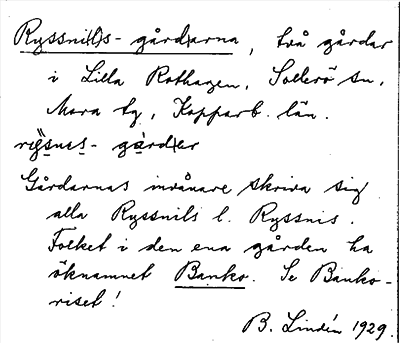 Ryssni(l)s-gård(arna, två gårdar
i Lilla Rothagen, Sollerö sn,
Mora tg, Kopparb. län.
Gårdarnas invånare skriva sig
alla Ryssnils l. Ryssnis.
Folket i den ena gården ha
öknamnet Banko. Se Banko-
riset!
B. Lindén 1929.